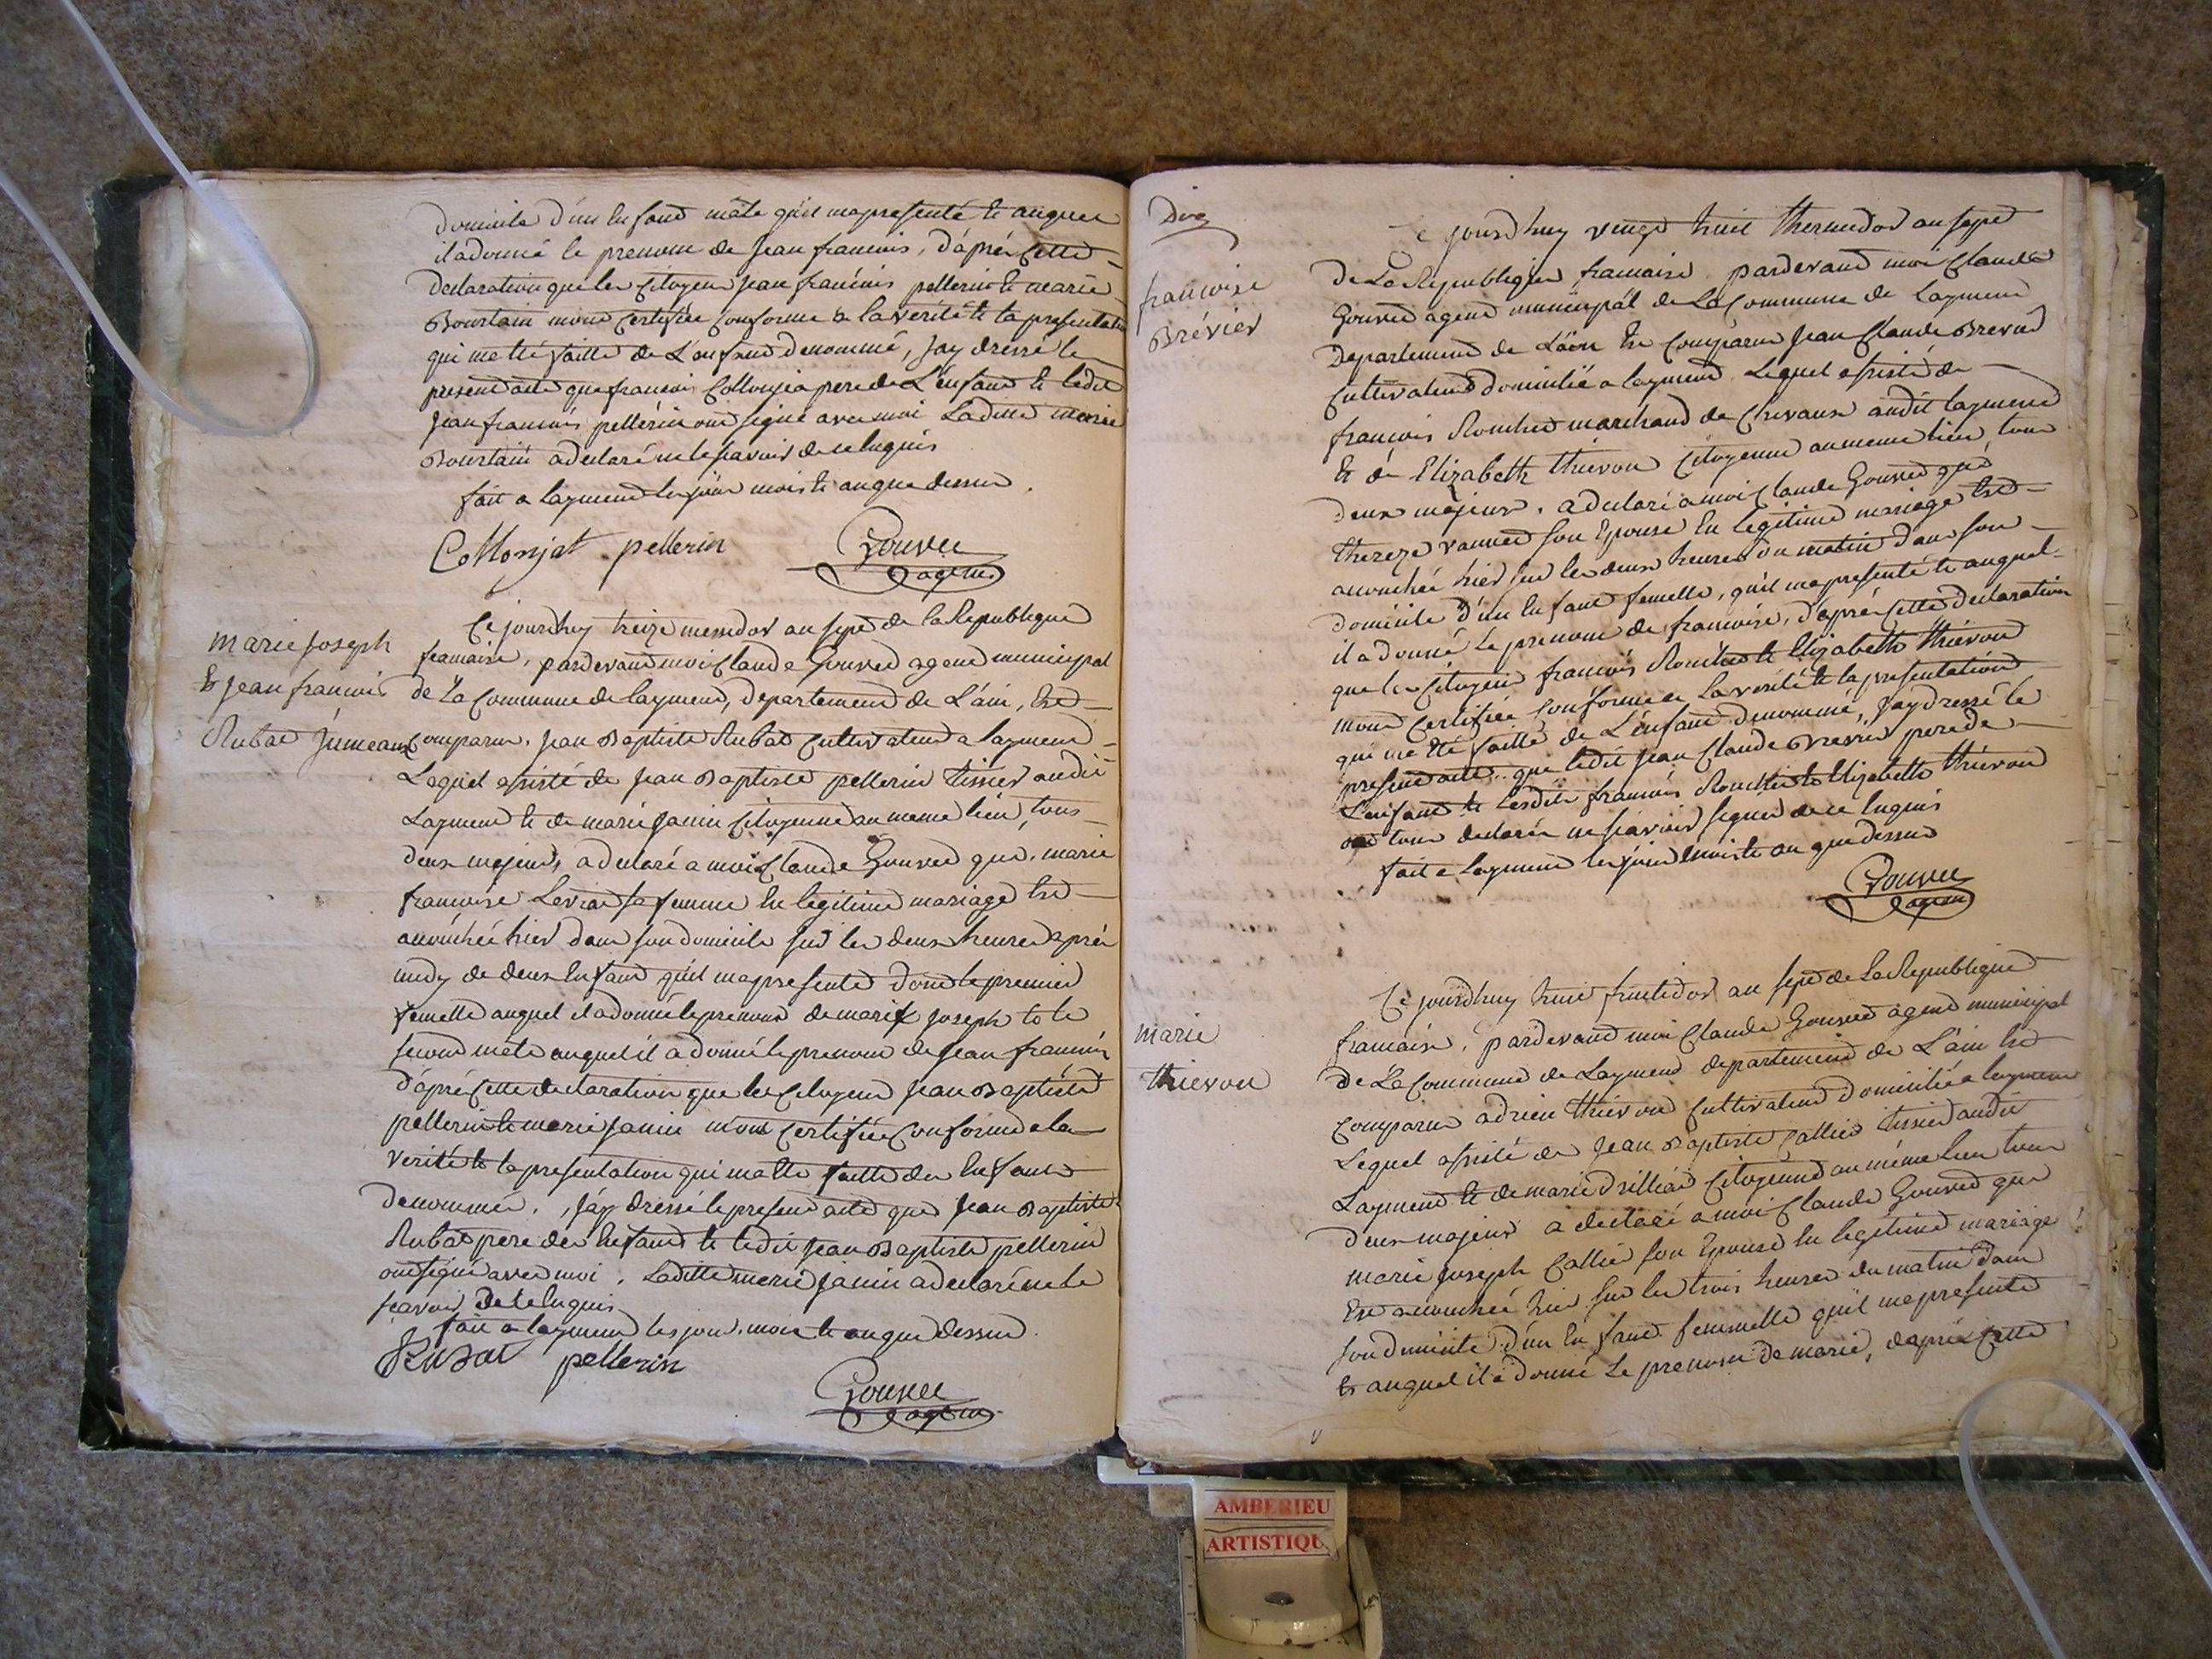 domicile d'un Enfant mâle qu'il ma presenté et auquel
il a donné le prenom de Jean francois, d'après Cette
declaration que les Citoyens Jean francois pellerin et marie
Bourtain mont Certifiée Conforme a la verité et la presentation
qui me été faitte de L'enfant denommé, jay dressé le
present acte que francois Collonjea pere de L'enfant et ledit
Jean francois pellerin ont signé avec moi Laditte marie
Bourtain a declaré ne le scavoir de ce Enquis
fait a laymend les jour mois et an que dessus.
Collonjat pellerin Gouvee
agent
marie Joseph
Et jean francois
Rubat Jumeaux
Ce jourdhuy treize messidor an sept de la Republique
francaise, pardevant moi Claude Gouvee agent municipal
de La Commune de laymend, departement de L'ain, Est
Comparu, Jean Baptiste Rubat Cultivateur a laymend
Lequel assisté de Jean Baptiste pellerin tissier audit
Laymend et de marie Janin Citoyenne au meme lieu, tous
deux majeurs, a declaré a moi Claude Gouvee que, marie
francoise Levrat sa femme En legitime mariage Est
accouchée hier dans son domicile sur les deux heures après
midy de deux Enfant qu'il ma presenté dont le premier
femelle auquel il a donné le prenom de marie Joseph et le
second mâle auquel il a donné le prenom de Jean francois
d'après Cette declaration que les Citoyens Jean Baptiste
pellerin et marie Janin mont Certifiée Conforme a la
verité et la presentation qui ma Eté faitte des Enfants
denommés, jay dressé le present acte que Jean Baptiste
Rubat pere des Enfants et ledit Jean Baptiste pellerin
ont signé avec moi, Laditte marie Janin a declaré ne le
scavoir de ce Enquis
fait a laymend les jour, mois et an que dessus.
Rubat pellerin
Gouvee
agent
francoise
Brévier
Ce jourdhuy vingt huit thermidor an sept
de La Republique francaise pardevant moi Claude
Gouvee agent municipal de La Commune de Laymend
Departement de L'ain Est Comparu Jean Claude Brevier
Cultivateur domicilié a laymend Lequel assisté de
francois Roucher marchand de Chevaux audit laymend
Et de Elizabeth thievon Citoyenne au meme lieu, tous
deux majeurs, a declaré a moi Claude Gouvee que
thereze vannet son Epouse En legitime mariage Est
accouchée hier sur les deux heures du matin dans son
domicile d'un Enfant femelle, qu'il ma presenté et auquel
il a donné Le prenom de francoise, d'après Cette declaration
que les Citoyens francois Roucher et Elizabeth thievon
mont Certifiée Conforme a La verité et la presentation
qui me Eté faitte de L'enfant denommé, jay dressé le
present acte que ledit Jean Claude Brevier pere de
L'enfant et lesdits francois Roucher et Elizabeth thievon
ont tous declarés ne scavoir signer de ce Enquis
fait a Laymend les jour mois et an que dessus
Gouvee
agent
marie
thievon
Ce jourdhuy huit fructidor an sept de La Republique
francaise, pardevant moi Claude Gouvee agent municipal
de La Commune de Laymend departement de L'ain Est
Comparu adrien thievon Cultivateur domicilié a laymend
Lequel assisté de Jean Baptiste Callier tissier audit
Laymend et de marie Drilliar Citoyenne au même lieu tous
deux majeurs a declaré a moi Claude Gouvee que
marie Joseph Callier son Epouse En legitime mariage
Est accouchée hier sur les trois heures du matin dans
son domicile d'un Enfant femmelle qu'il ma presenté
Et auquel il a donné Le prenom de marie, daprès Cette
AMBERIEU
ARTISTIQU